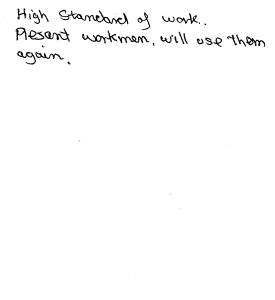 High Standard of work..
Plesant workmen, will use them
again.